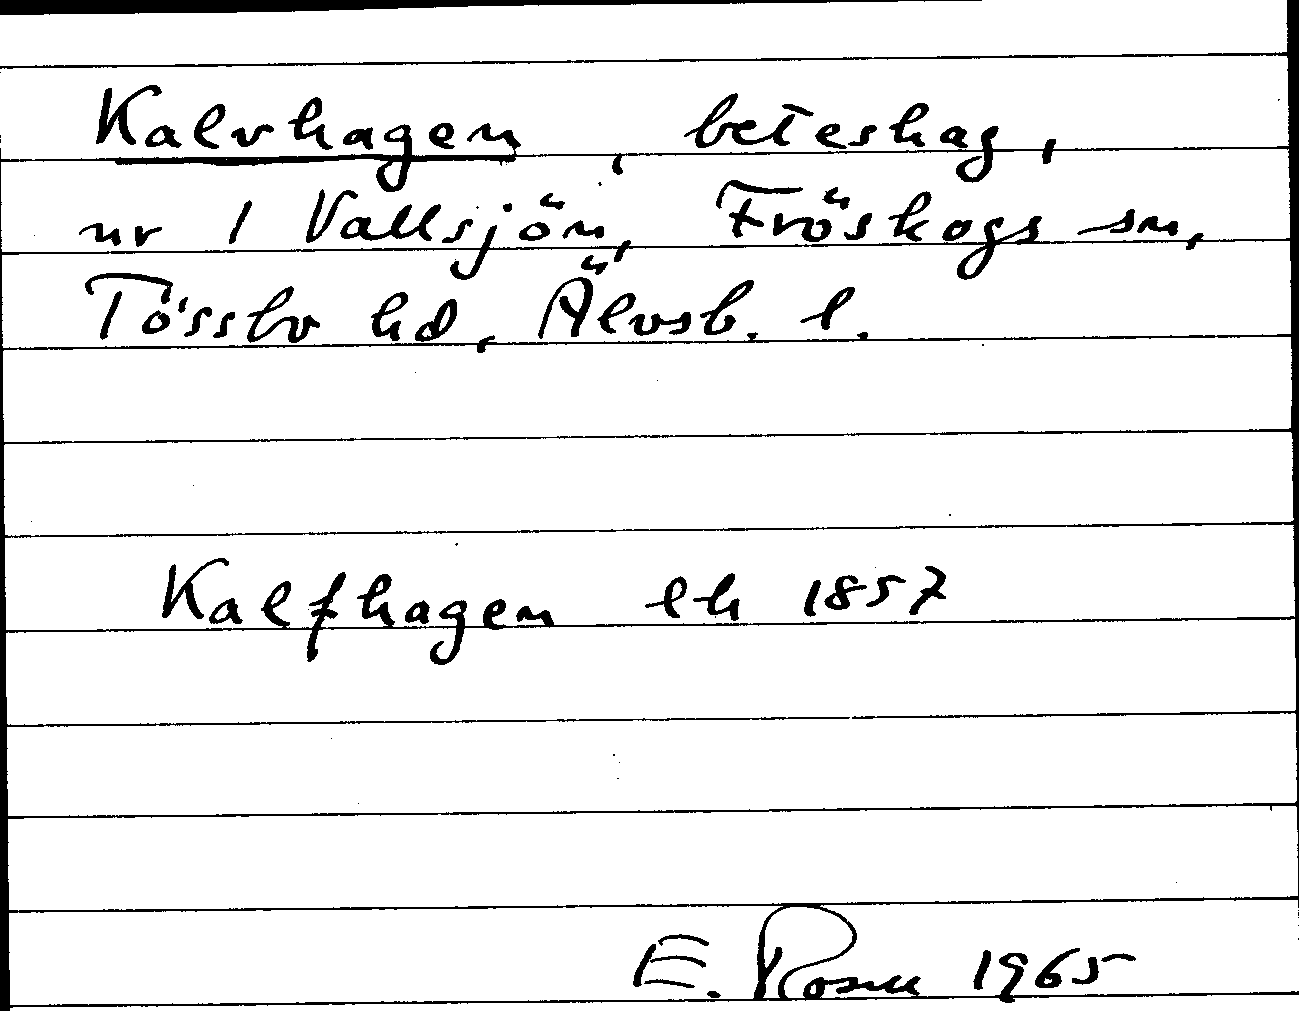 Kalvhagen, beteshag,
nr 1 Vallsjön, Fröskogs sn,
Tössbo hd, Älvsb. l.
Kalfhagen lh 1857
E. Rosen 1965